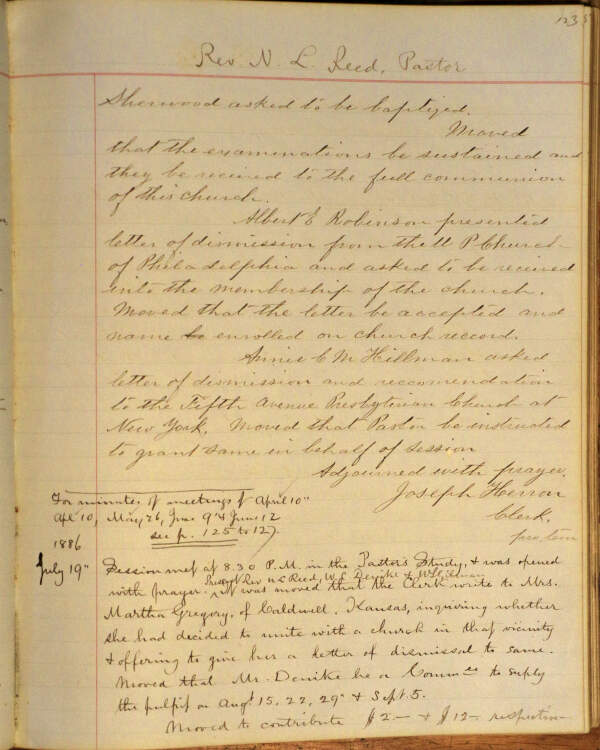 123
Rev. N. L. Reed, Pastor
Sherwood asked to be baptized.
Moved
that the examinations be sustained and
they be recieved to the full communion
of this church.
Albert E Robinson presented
letter of dismission from the U P Church
of Philadelphia and asked to be recieved
into the membership of the church.
Moved that the letter be accepted and
name be enrolled on church record.
Annie C M Hillman asked
letter of dismission and reccomendation
to the Fifth Avenue Presbyterian Church at
New York. Moved that Pastor be instructed
to grant same in behalf of session
Adjourned with prayer.
Joseph Herron
Clerk.
pro tem
For minutes of meetings of April 10"
Apl 10, May 26, June 9" & June 12
see p. 125 to 127.
1886
July 19" Session met at 8.30 P.M. in the Pastor's Study, & was opened
Present Rev. N L Reed, W. E. Denike &
with prayer. It was moved that the Clerk write to Mrs.
Martha Gregory, of Caldwell, Kansas, inquiring whether
she had decided to unite with a church in that vicinity
& offering to give her a letter of dismissal to same.
Moved that Mr. Denike be a Comm'ee to supply
the pulpit on Aug't 15, 22, 29" & Sept. 5.
Moved to contribute $2— & $12—